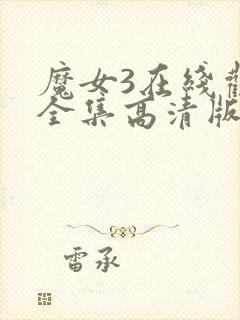 魔女3在线
全集高清版
雷承